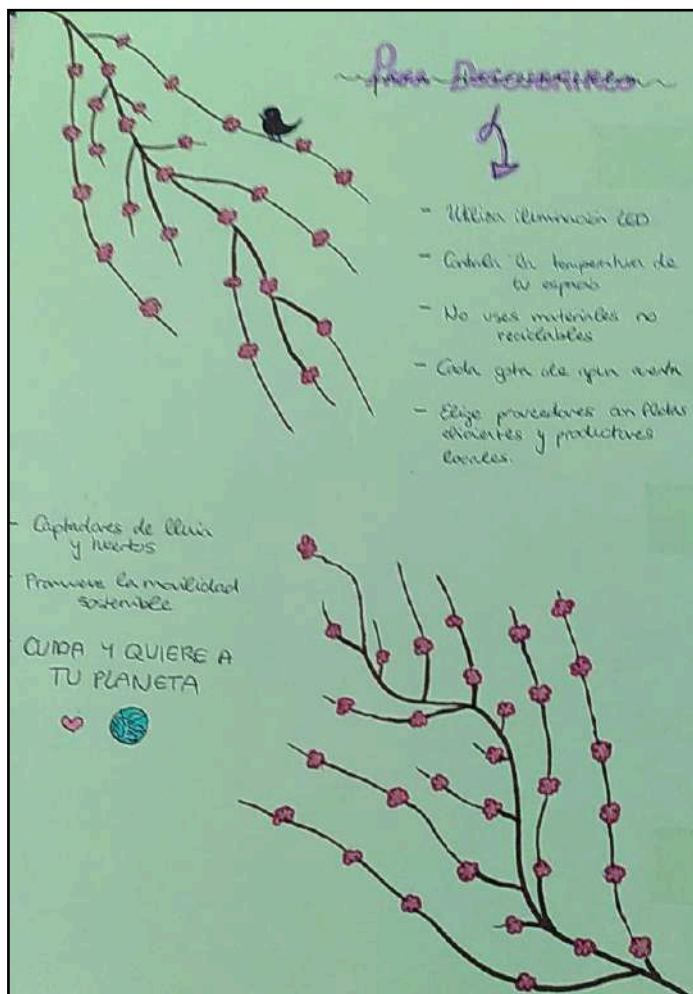 PARA DESCUBRIRLO
- Utiliza iluminación LED
- Controla la temperatura de
tu espacio
- No uses materiales no
reciclables
- Cada gota de agua cuenta
- Elige proveedores con flotas
eficientes y productores
locales.
- Captadores de lluvia
y huertos
- Promueve la movilidad
sostenible
CUIDA Y QUIERE A
TU PLANETA